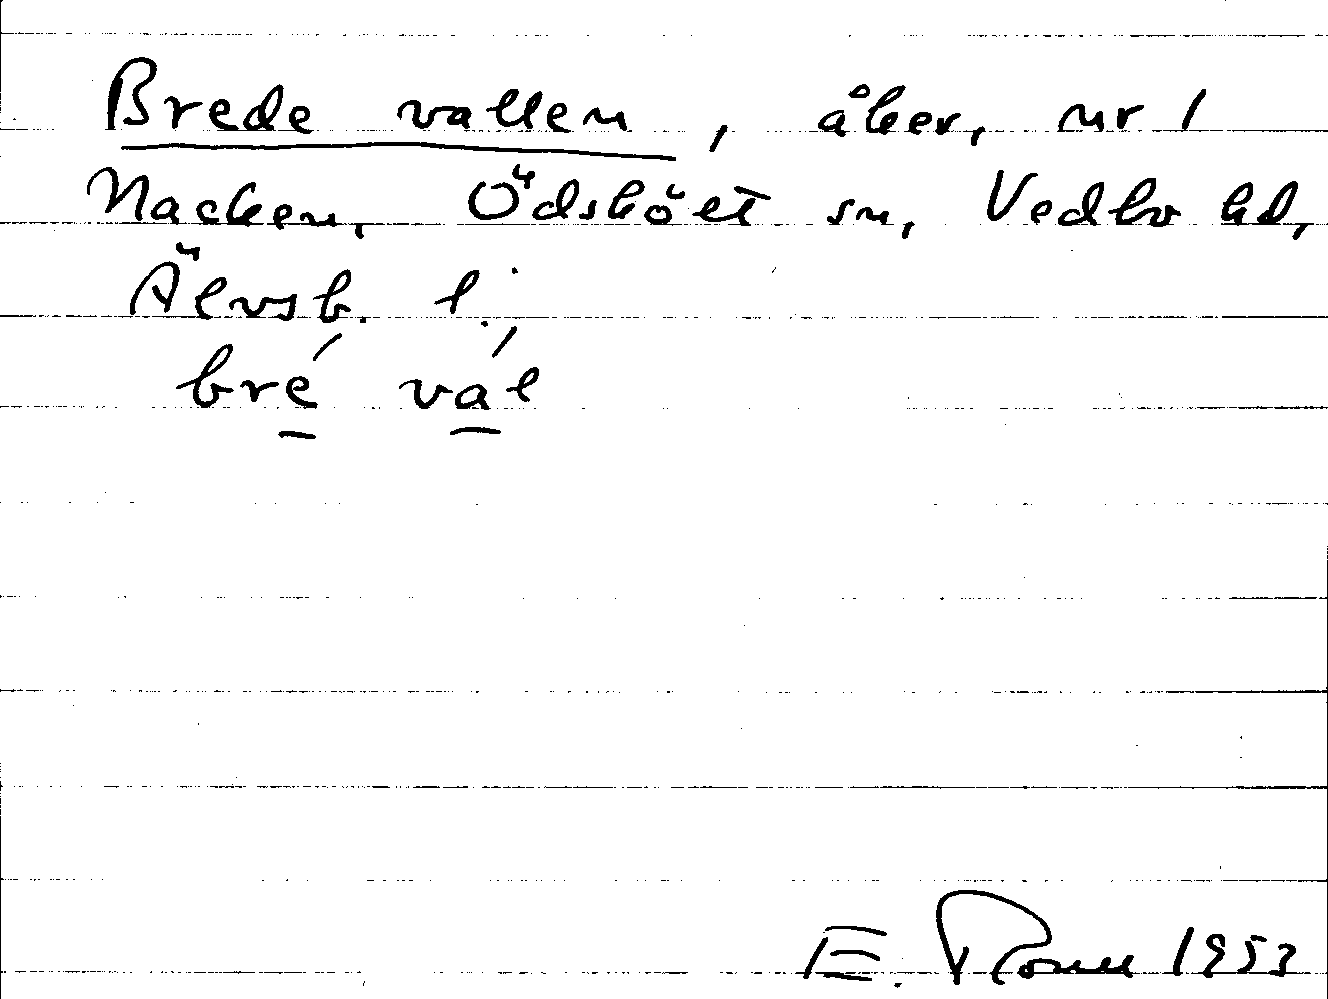 Brede vallen, åker, nr 1
Nacken, Ödskölt sn, Vedbo hd,
Älvsb. l.;
bré vál
E. 1953